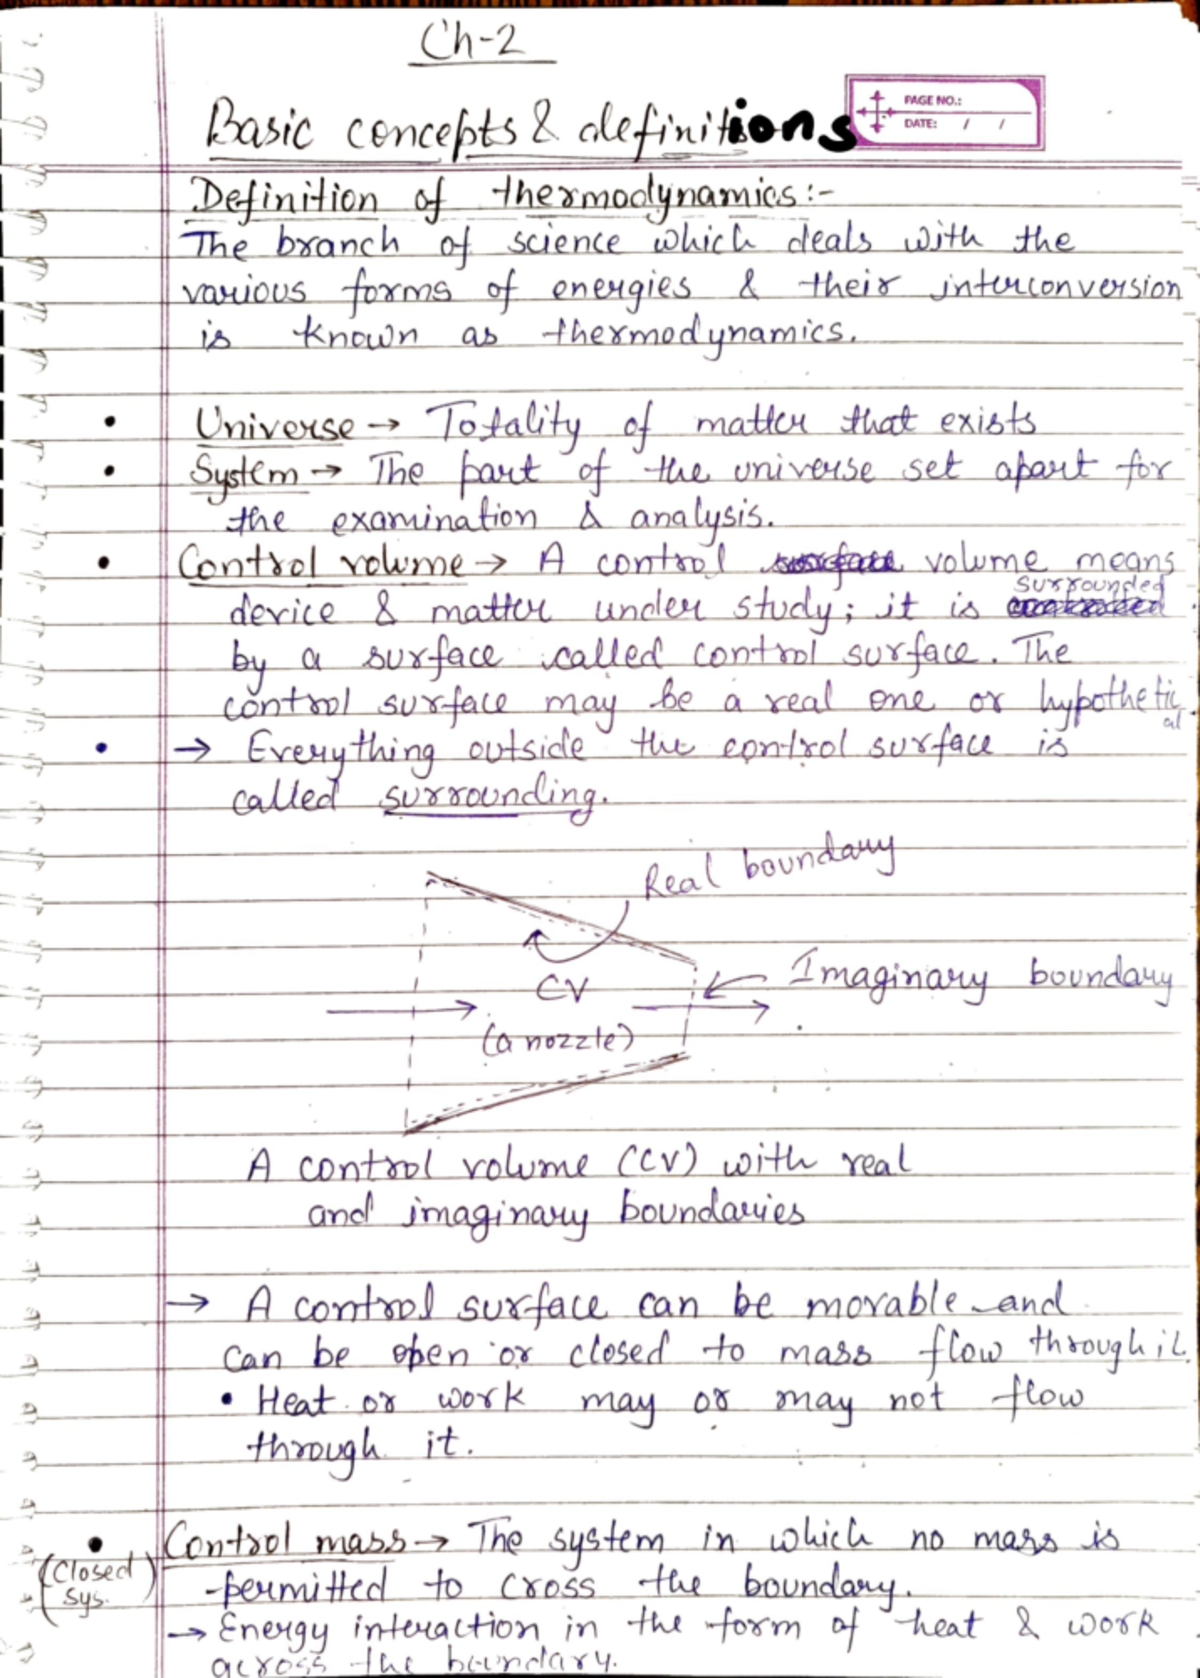 Ch-2
Basic concepts & definitions
PAGE NO.:
DATE: / /
Definition of thermodynamics:-
The branch of science which deals with the
various forms of energies & their interconversion
is known as thermodynamics.
• Universe → Totality of matter that exists
• System → The part of the universe set apart for
the examination & analysis.
• Control volume → A control surface volume means
surrounded
device & matter under study; it is
by a surface called control surface. The
control surface may be a real one or hypothetical.
• → Everything outside the control surface is
called surrounding.
Real boundary
Imaginary boundary
CV
(a nozzle)
A control volume (CV) with real
and imaginary boundaries
→ A control surface can be movable and
can be open or closed to mass flow through it.
• Heat or work may or may not flow
through it.
• Control mass → The system in which no mass is
(Closed sys.)
permitted to cross the boundary.
→ Energy interaction in the form of heat & work
across the boundary.